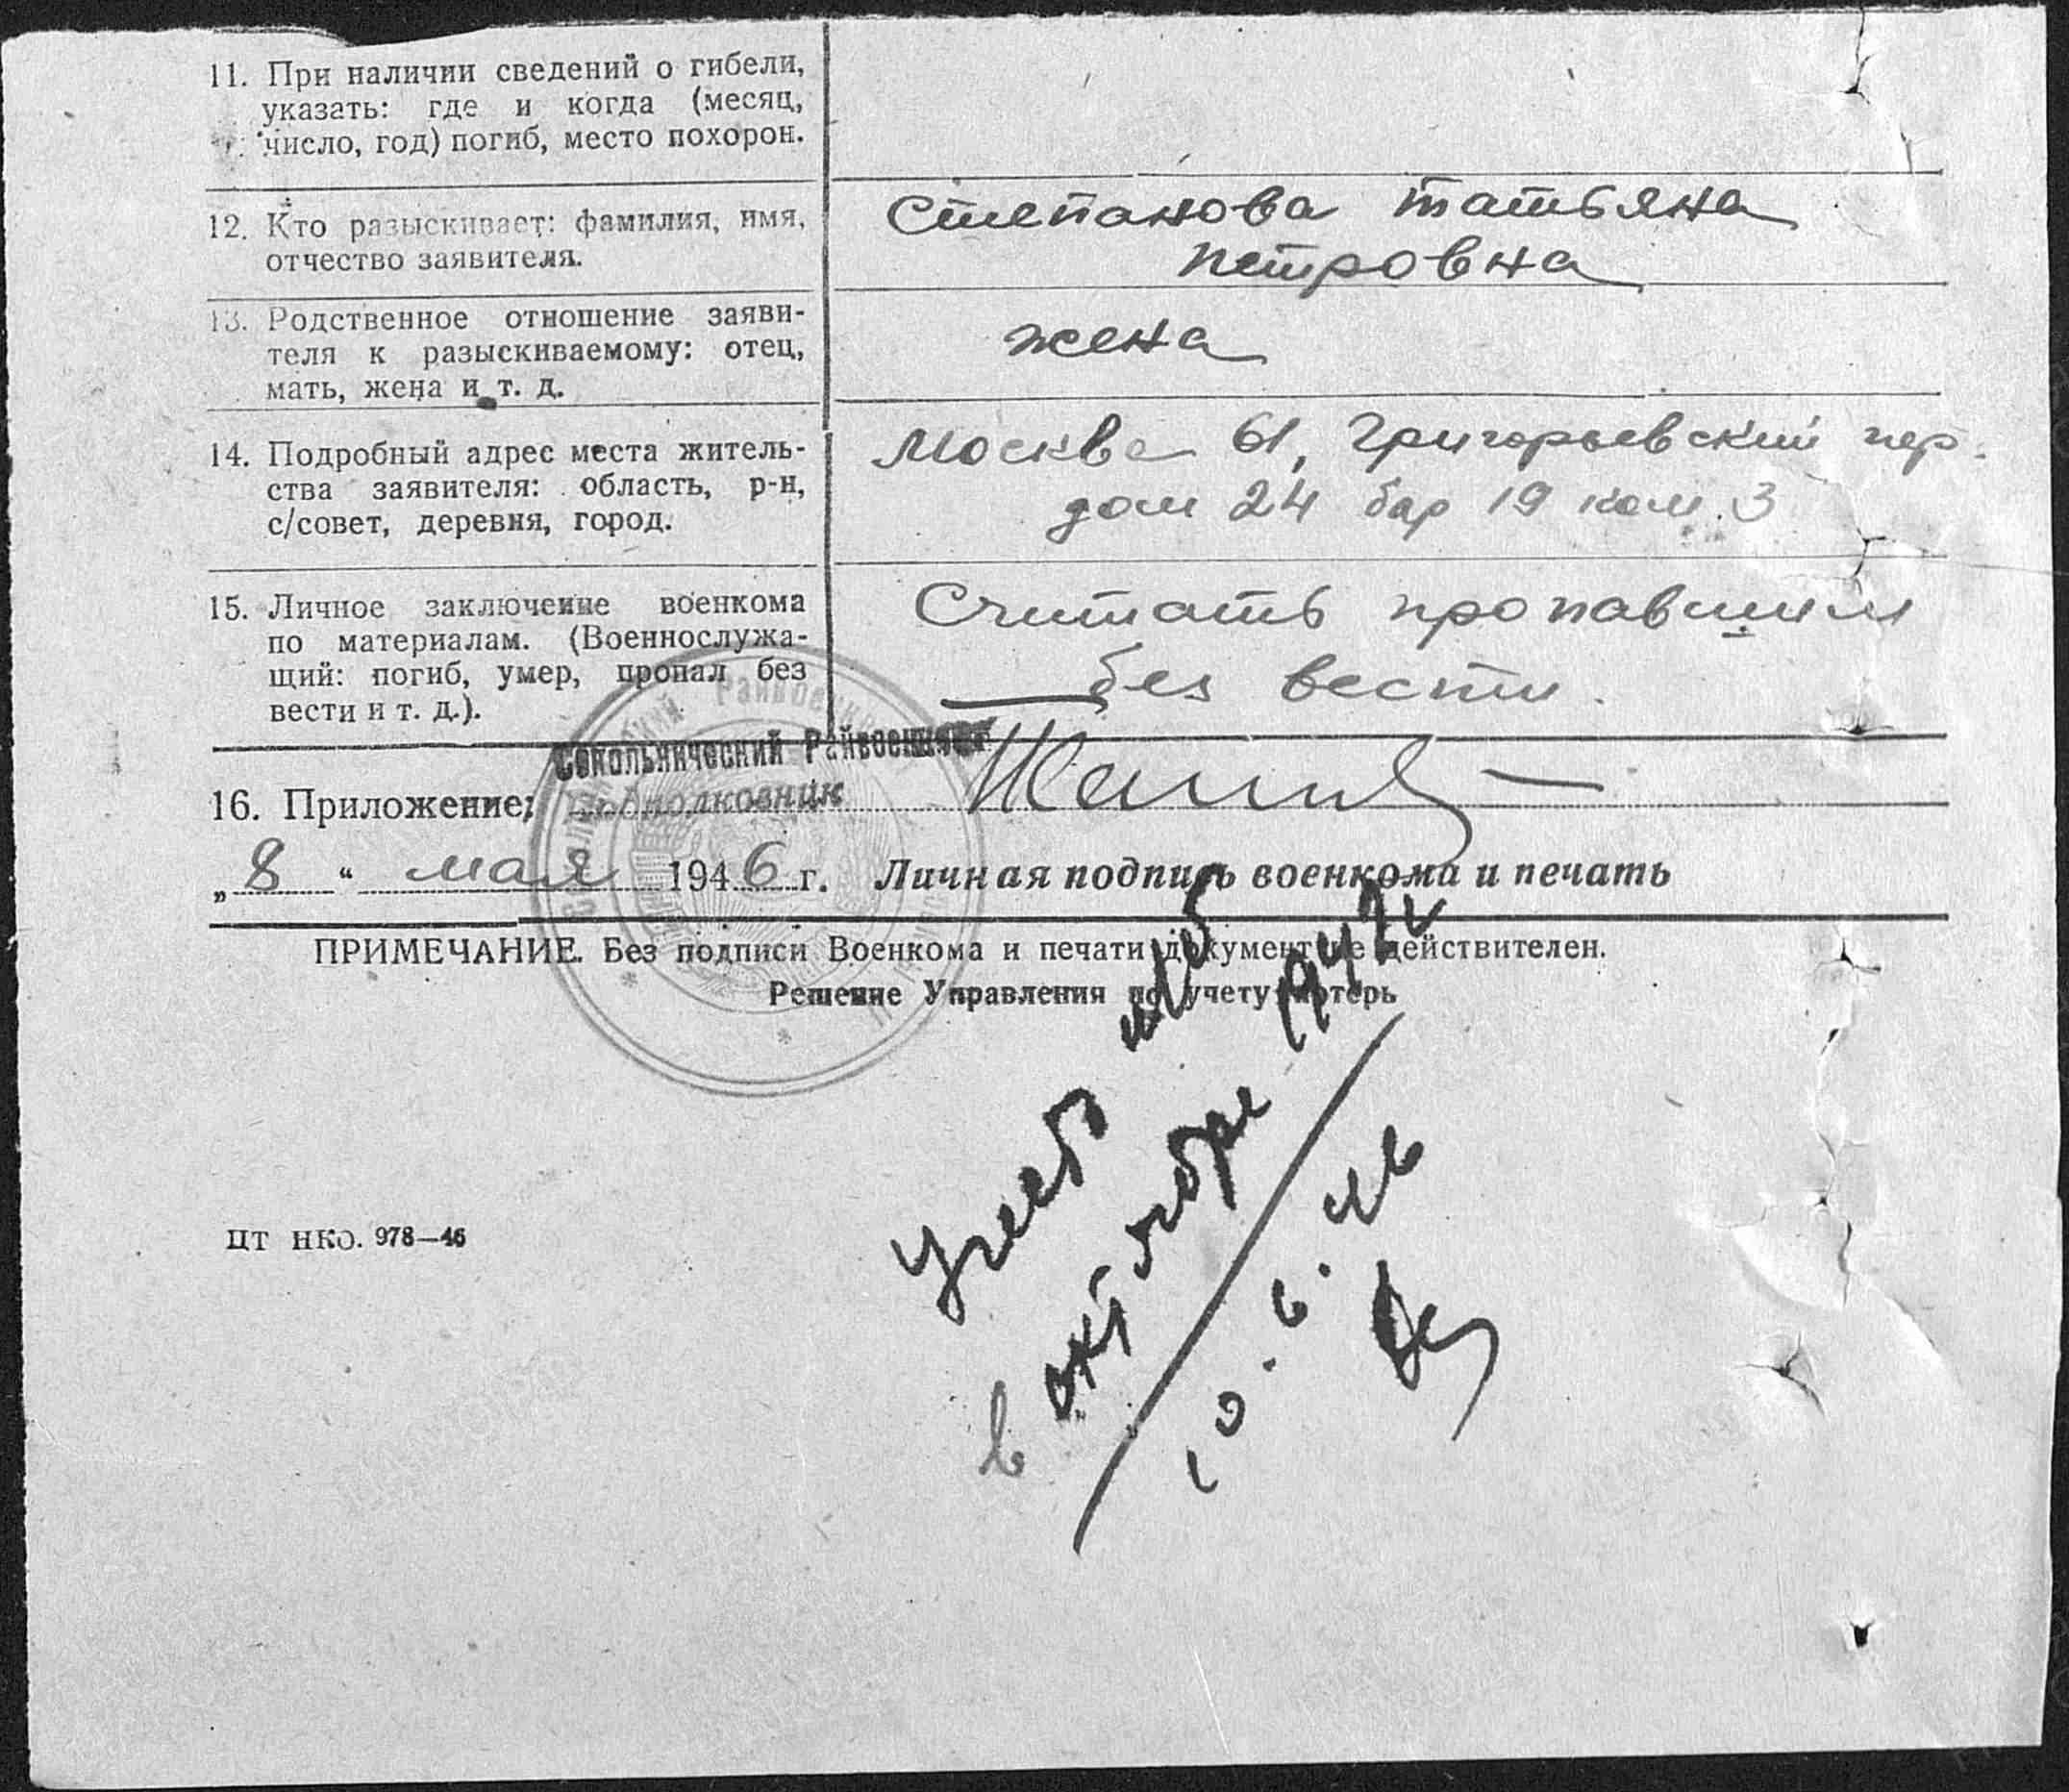 11. При наличии сведений о гибели,
указать: где и когда (месяц,
число, год) погиб, место похорон.
12. Кто разыскивает: фамилия, имя,
отчество заявителя.
Степанова Татьяна
Петровна
13. Родственное отношение заяви-
теля к разыскиваемому: отец,
мать, жена и т. д.
жена
14. Подробный адрес места житель-
ства заявителя: область, р-н,
с/совет, деревня, город.
Москва 61, Григорьевский пер.
дом 24 бар 19 ком. 3
15. Личное заключение военкома
по материалам. (Военнослужа-
щий: погиб, умер, пропал без
вести и т. д.).
Считать пропавшим
без вести.
Сокольнический Райвоенком
Подполковник
16. Приложение:
„8“ мая 1946 г. Личная подпись военкома и печать
ПРИМЕЧАНИЕ. Без подписи Военкома и печати документ не действителен.
Решение Управления по учету потерь
в октябре
10.6.46
ЦТ НКО. 978—46